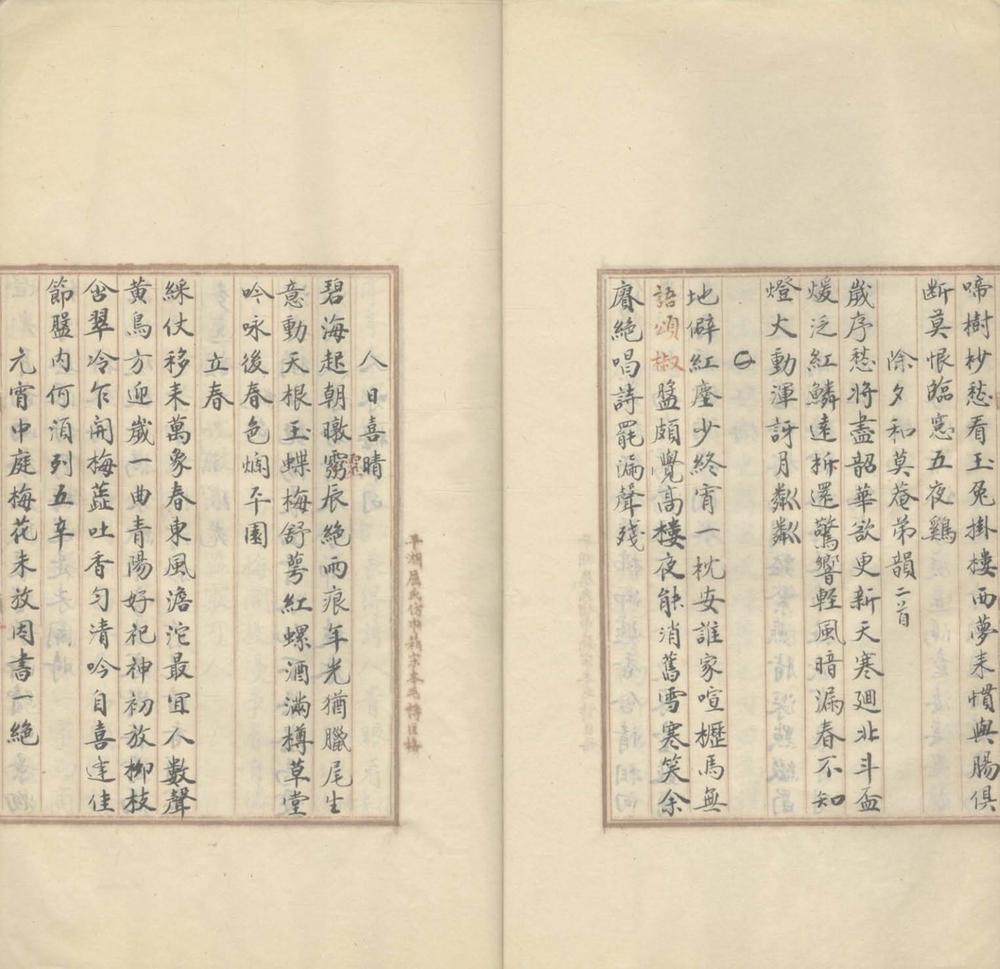 啼樹杪愁看玉兔掛樓西夢来慣與腸俱
断莫恨臨窓五夜鷄
除夕和莫菴弟韻二首
歲序愁将盡韶華欲更新天寒廻北斗盃
煖泛紅鱗遠柝還驚響輕風暗漏春不知
燈火動渾訝月粼粼
地僻紅塵少終宵一枕安誰家喧櫪馬無
語頌椒盤頗覺高樓夜能消舊雪寒笑余
賡絶唱詩罷漏聲殘
人日喜晴
碧海起朝暾霽辰絶雨痕年光猶臘尾生
意動天根玉蝶梅舒萼紅螺酒滿樽草堂
吟咏後春色爛平園
立春
綵仗移来萬象春東風澹沱最宜人數聲
黄鳥方迎歲一曲青陽好祀神初放柳枝
含翠冷乍開梅蕋吐香匀清吟自喜逢佳
節盤内何須列五辛
元宵中庭梅花未放因書一絶